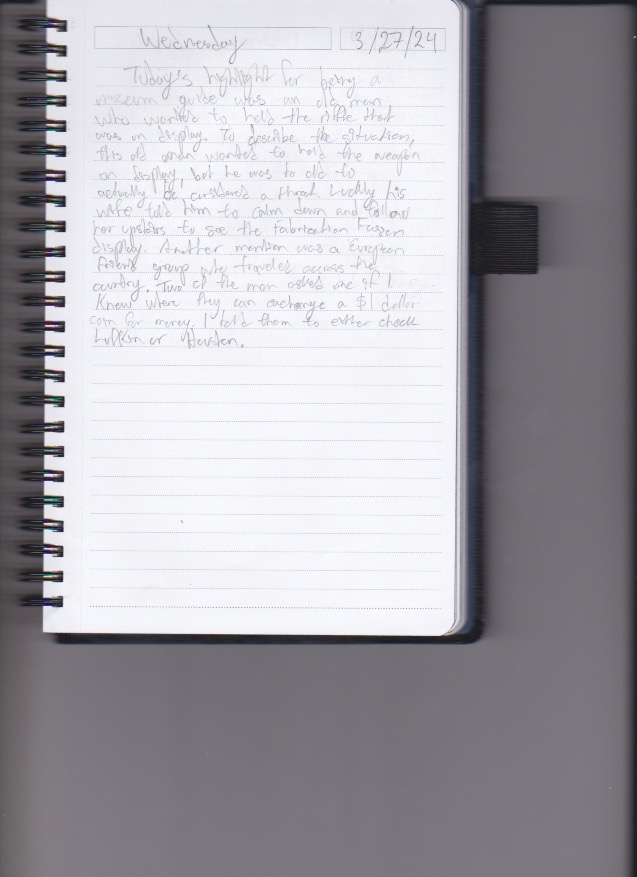 Wednesday 3/27/24
Today's highlight for being a
museum guide was an old man
who wanted to hold the rifle that
was on display. To describe the situation,
this old man wanted to hold the weapon
on display, but he was to old to
actually be considered a threat. Luckly his
wife told him to calm down and follow
her upstairs to see the fabrication
display. Another mention was a European
friend group who traveled across the
country. Two of the men asked me if I
Knew where they can exchange a $1 dollar
coin for money. I told them to either check
Lufkin or Houston.